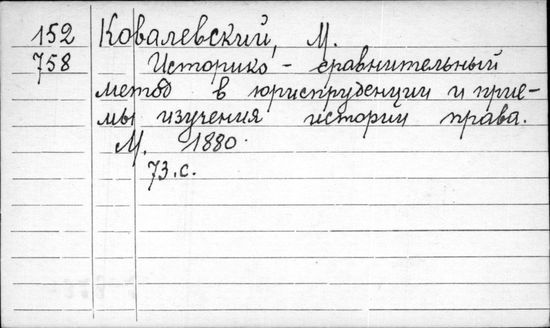 152 Ковалевский, М.
758 Историко - сравнительный
метод в юриспруденции и прие-
мы изучения истории права.
М. 1880.
73.с.